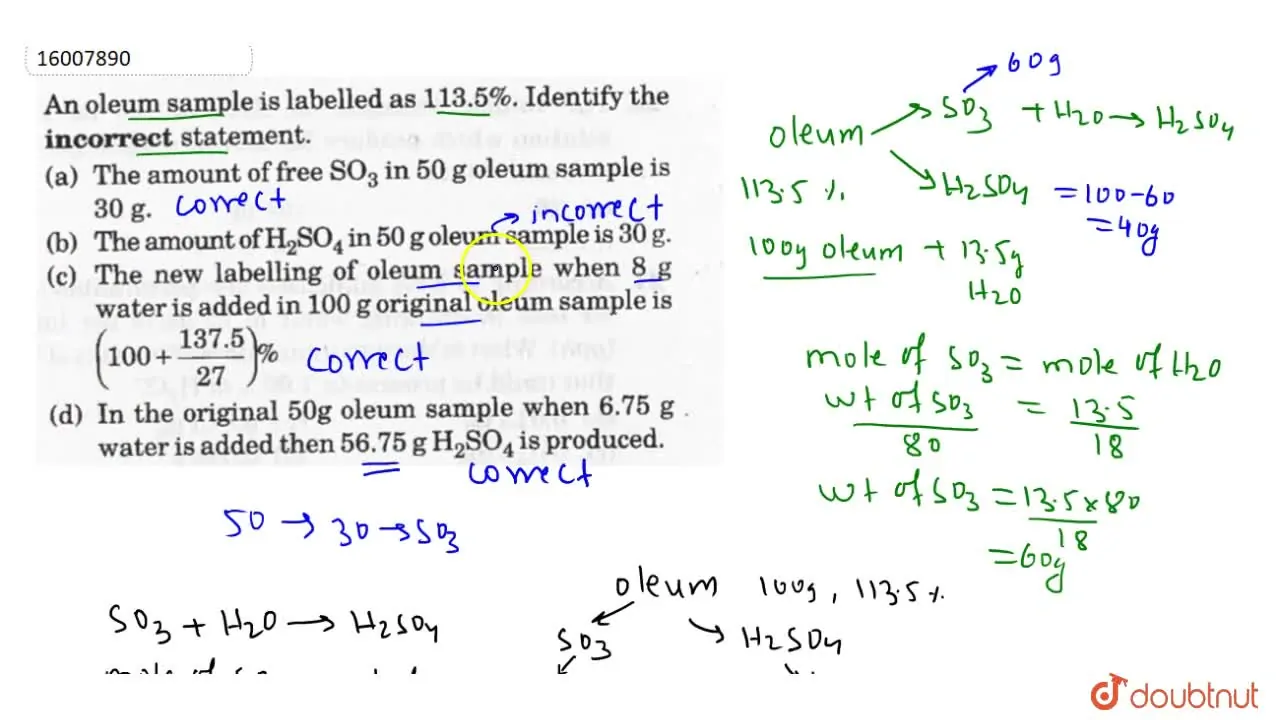 16007890
An oleum sample is labelled as 113.5%. Identify the
incorrect statement.
(a) The amount of free SO₃ in 50 g oleum sample is
30 g. correct
incorrect
(b) The amount of H₂SO₄ in 50 g oleum sample is 30 g.
(c) The new labelling of oleum sample when 8 g
water is added in 100 g original oleum sample is
(100 + 137.5/27)% correct
(d) In the original 50g oleum sample when 6.75 g
water is added then 56.75 g H₂SO₄ is produced.
correct
50 → 30 → SO3
SO3 + H2O → H2SO4
60g
oleum SO3 + H2O → H2SO4
113.5 % H2SO4 = 100-60
= 40g
100g oleum + 13.5g
H2O
mole of SO3 = mole of H2O
wt of SO3 / 80 = 13.5 / 18
wt of SO3 = 13.5 x 80 / 18
= 60g
oleum 100g, 113.5 %
SO3 H2SO4
doubtnut